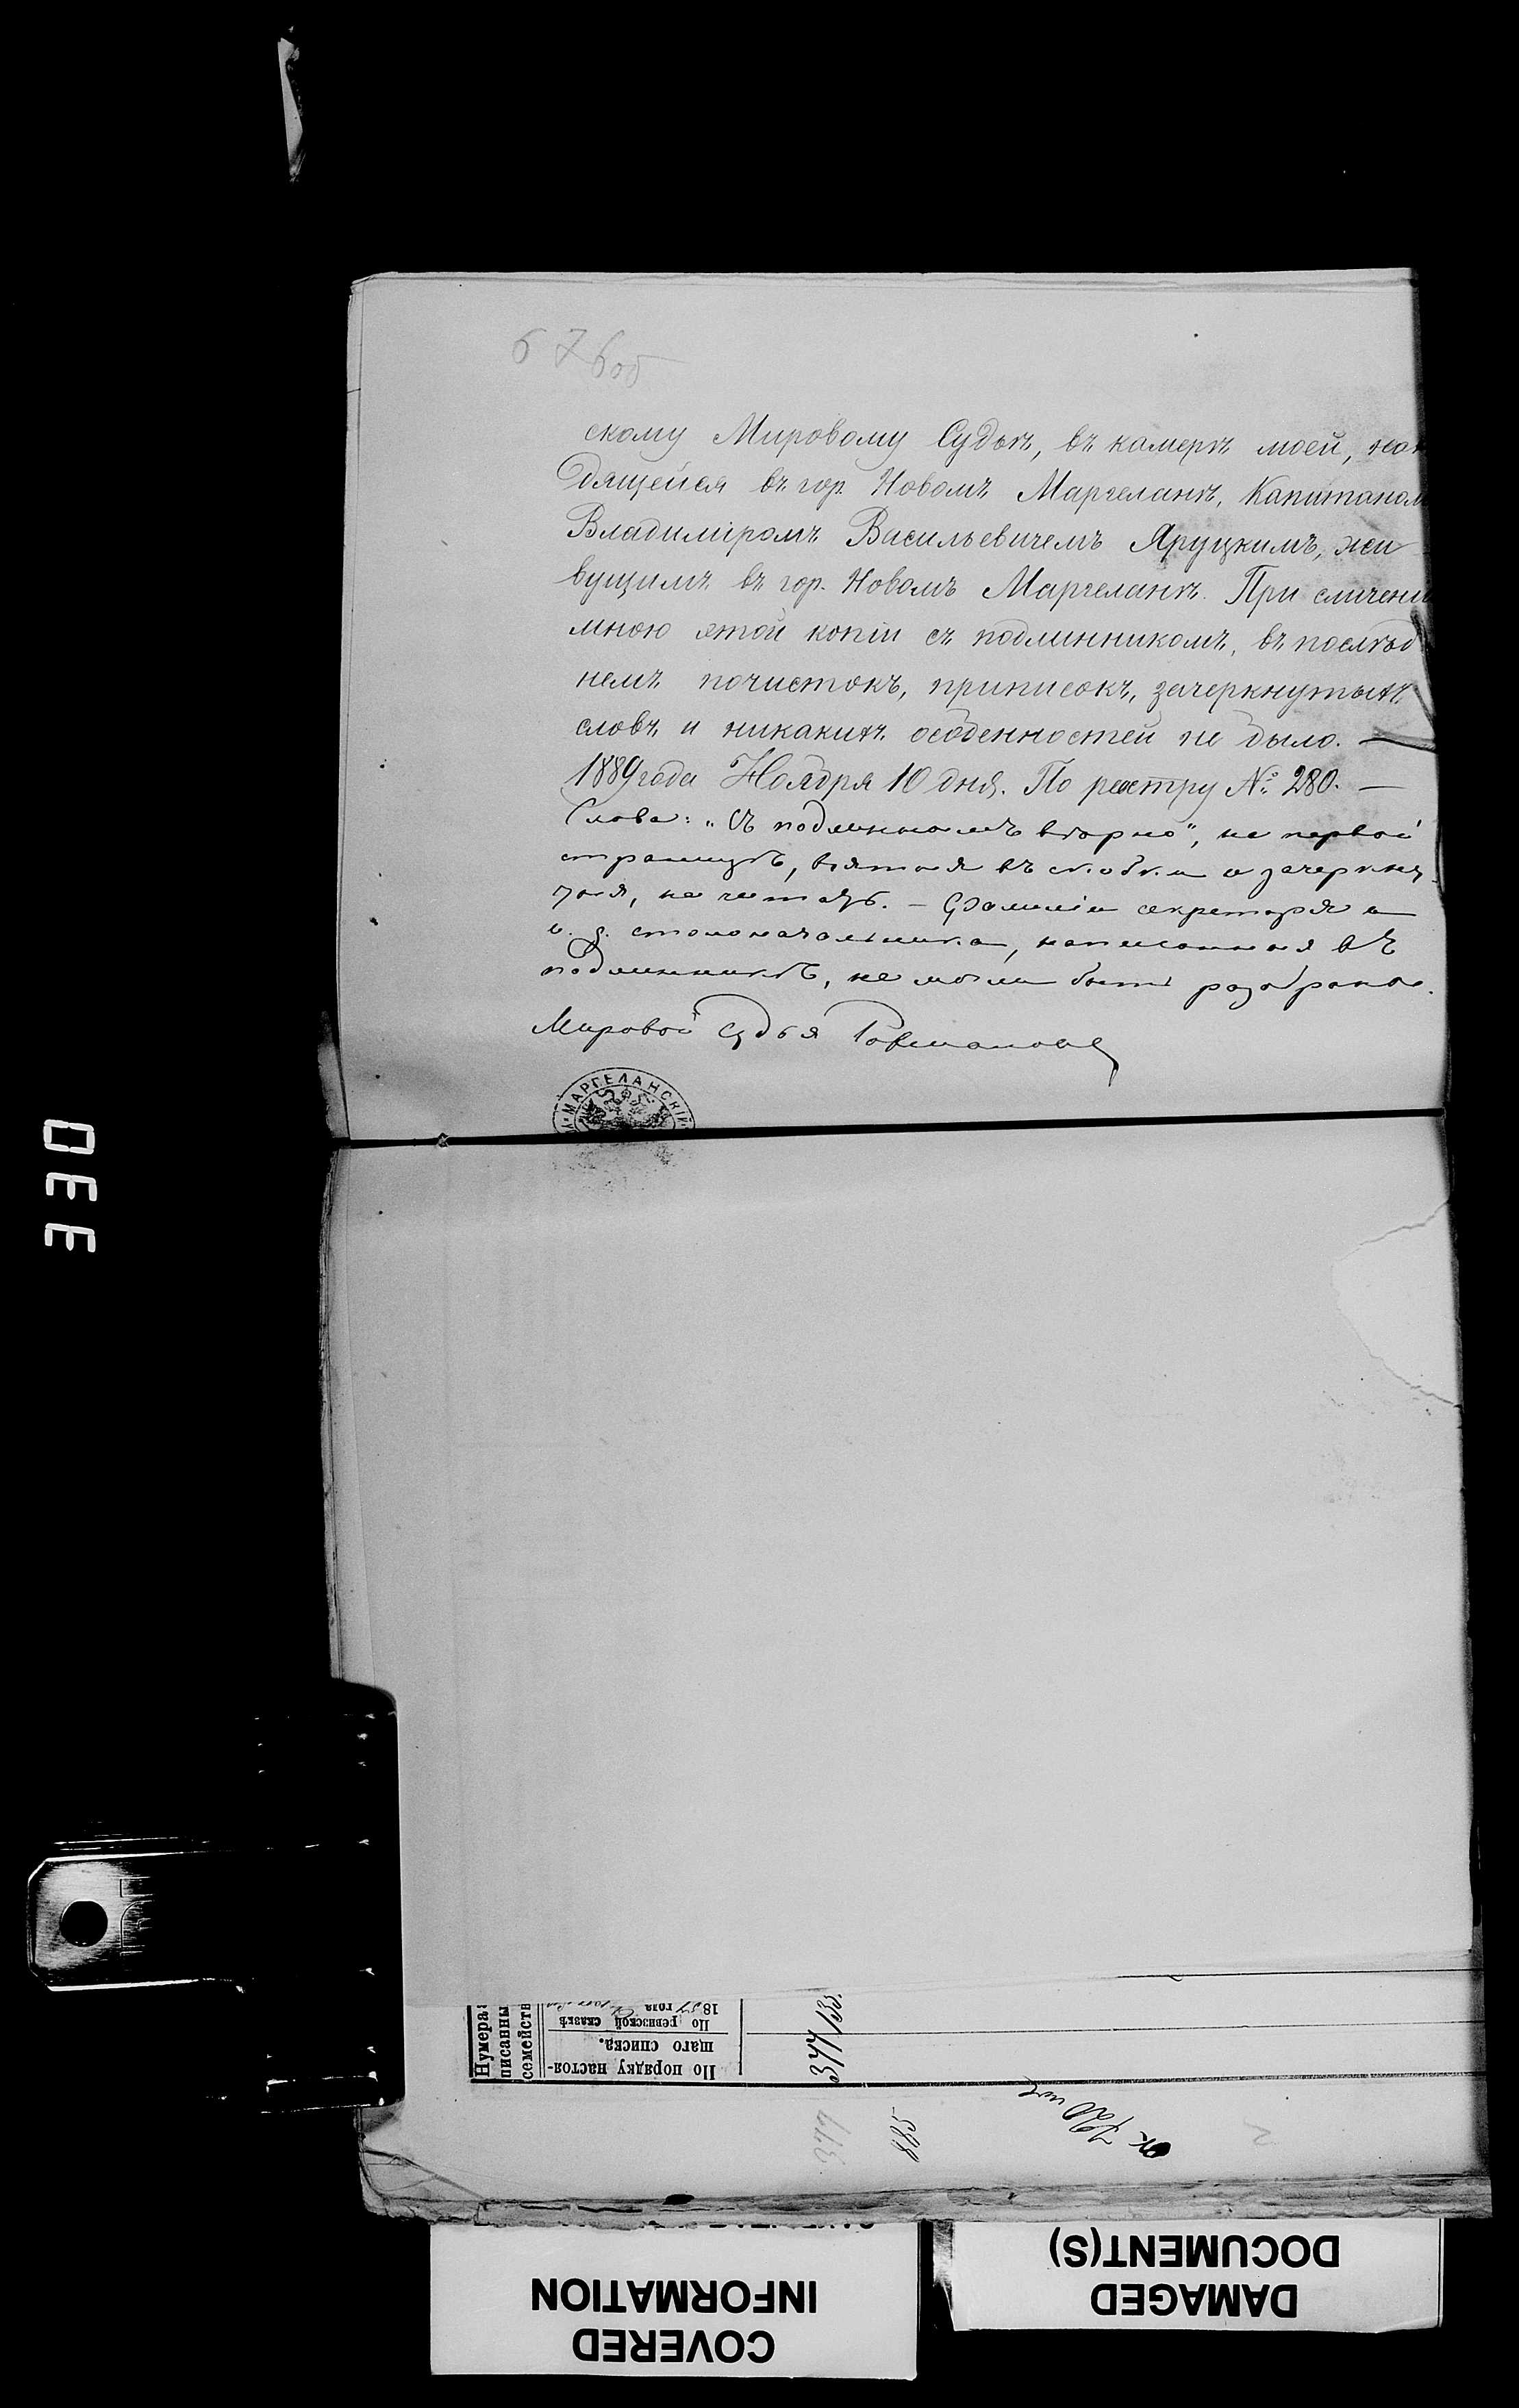 676об
скому Мировому Судьѣ, въ камерѣ моей, нахо
дящейся въ гор. Новомъ Маргеланѣ, Капитаном
Владиміромъ Васильевичемъ Яруцкимъ, жи
вущимъ въ гор. Новомъ Маргеланѣ. При сличени
мною этой копіи съ подлинникомъ, въ послѣд
немъ почистокъ, приписокъ, зачеркнутыхъ
словъ и никакихъ особенностей не было. —
1889 года Ноября 10 дня. По реестру № 280. —
Слова: „Съ подлиннымъ вѣрно", на первой
страницѣ, взятыя въ скобки и зачеркну
тыя, не читать. – Фамиліи секретаря и
и. д. столоначальника, написанныя въ
подлинникѣ, не могли быть разобраны.
Мировой Судья
МАРГЕЛАНСКІЙ
330
Нумера
писанны
семейств
По порядку настоя-
щаго списка.
По ревизской сказкѣ
18 года
377/135
377
885
DAMAGED
DOCUMENT(S)
COVERED
INFORMATION